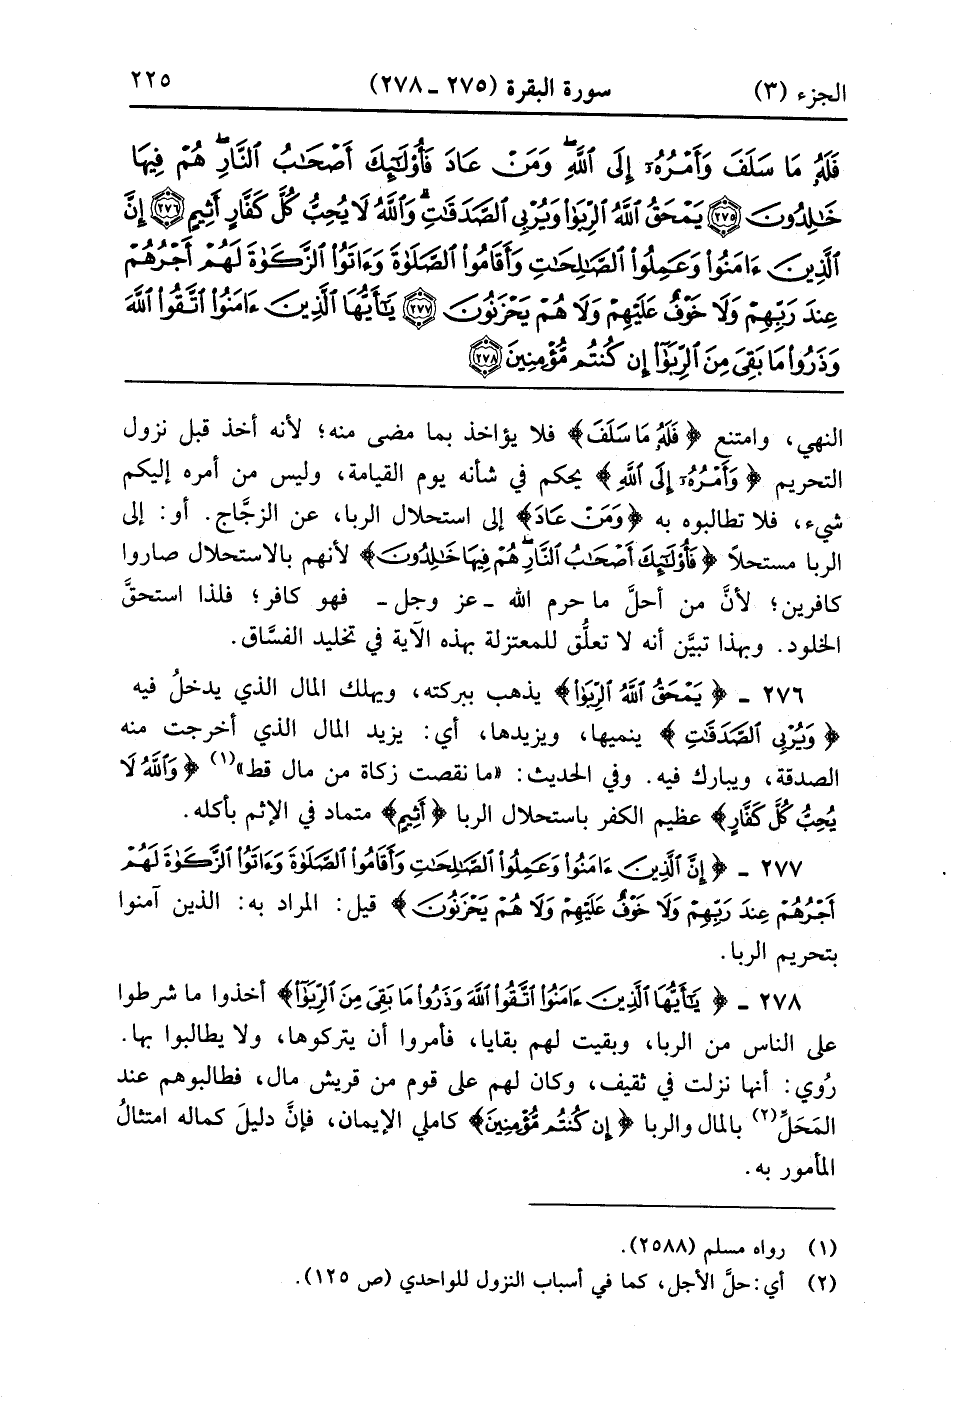 الجزء (٣) سورة البقرة (٢٧٥ ـ ٢٧٨) ٢٢٥
فَلَهُۥ مَا سَلَفَ وَأَمْرُهُۥٓ إِلَى ٱللَّهِۖ وَمَنْ عَادَ فَأُو۟لَٰٓئِكَ أَصْحَٰبُ ٱلنَّارِۖ هُمْ فِيهَا
خَٰلِدُونَ ﴿٢٧٥﴾ يَمْحَقُ ٱللَّهُ ٱلرِّبَوٰا۟ وَيُرْبِى ٱلصَّدَقَٰتِۗ وَٱللَّهُ لَا يُحِبُّ كُلَّ كَفَّارٍ أَثِيمٍ ﴿٢٧٦﴾ إِنَّ
ٱلَّذِينَ ءَامَنُوا۟ وَعَمِلُوا۟ ٱلصَّٰلِحَٰتِ وَأَقَامُوا۟ ٱلصَّلَوٰةَ وَءَاتَوُا۟ ٱلزَّكَوٰةَ لَهُمْ أَجْرُهُمْ
عِندَ رَبِّهِمْ وَلَا خَوْفٌ عَلَيْهِمْ وَلَا هُمْ يَحْزَنُونَ ﴿٢٧٧﴾ يَٰٓأَيُّهَا ٱلَّذِينَ ءَامَنُوا۟ ٱتَّقُوا۟ ٱللَّهَ
وَذَرُوا۟ مَا بَقِىَ مِنَ ٱلرِّبَوٰٓا۟ إِن كُنتُم مُّؤْمِنِينَ ﴿٢٧٨﴾
النهي، وامتنع ﴿فَلَهُۥ مَا سَلَفَ﴾ فلا يؤاخذ بما مضى منه؛ لأنه أخذ قبل نزول
التحريم ﴿وَأَمْرُهُۥٓ إِلَى ٱللَّهِ﴾ يحكم في شأنه يوم القيامة، وليس من أمره إليكم
شيء، فلا تطالبوه به ﴿وَمَنْ عَادَ﴾ إلى استحلال الربا، عن الزجَّاج. أو: إلى
الربا مستحلاً ﴿فَأُو۟لَٰٓئِكَ أَصْحَٰبُ ٱلنَّارِۖ هُمْ فِيهَا خَٰلِدُونَ﴾ لأنهم بالاستحلال صاروا
كافرين؛ لأنَّ من أحلَّ ما حرم الله ـ عز وجل ـ فهو كافر؛ فلذا استحقَّ
الخلود. وبهذا تبيَّن أنه لا تعلُّق للمعتزلة بهذه الآية في تخليد الفسَّاق.
٢٧٦ ـ ﴿يَمْحَقُ ٱللَّهُ ٱلرِّبَوٰا۟﴾ يذهب ببركته، ويهلك المال الذي يدخلُ فيه
﴿وَيُرْبِى ٱلصَّدَقَٰتِ﴾ ينميها، ويزيدها، أي: يزيد المال الذي أخرجت منه
الصدقة، ويبارك فيه. وفي الحديث: «ما نقصت زكاة من مال قط»(١) ﴿وَٱللَّهُ لَا
يُحِبُّ كُلَّ كَفَّارٍ﴾ عظيم الكفر باستحلال الربا ﴿أَثِيمٍ﴾ متماد في الإثم بأكله.
٢٧٧ ـ ﴿إِنَّ ٱلَّذِينَ ءَامَنُوا۟ وَعَمِلُوا۟ ٱلصَّٰلِحَٰتِ وَأَقَامُوا۟ ٱلصَّلَوٰةَ وَءَاتَوُا۟ ٱلزَّكَوٰةَ لَهُمْ
أَجْرُهُمْ عِندَ رَبِّهِمْ وَلَا خَوْفٌ عَلَيْهِمْ وَلَا هُمْ يَحْزَنُونَ﴾ قيل: المراد به: الذين آمنوا
بتحريم الربا.
٢٧٨ ـ ﴿يَٰٓأَيُّهَا ٱلَّذِينَ ءَامَنُوا۟ ٱتَّقُوا۟ ٱللَّهَ وَذَرُوا۟ مَا بَقِىَ مِنَ ٱلرِّبَوٰٓا۟﴾ أخذوا ما شرطوا
على الناس من الربا، وبقيت لهم بقايا، فأمروا أن يتركوها، ولا يطالبوا بها.
رُوي: أنها نزلت في ثقيف، وكان لهم على قوم من قريش مال، فطالبوهم عند
المَحَلِّ(٢) بالمال والربا ﴿إِن كُنتُم مُّؤْمِنِينَ﴾ كاملي الإيمان، فإنَّ دليلَ كماله امتثالُ
المأمور به.
(١) رواه مسلم (٢٥٨٨).
(٢) أي: حلَّ الأجل، كما في أسباب النزول للواحدي (ص ١٢٥).